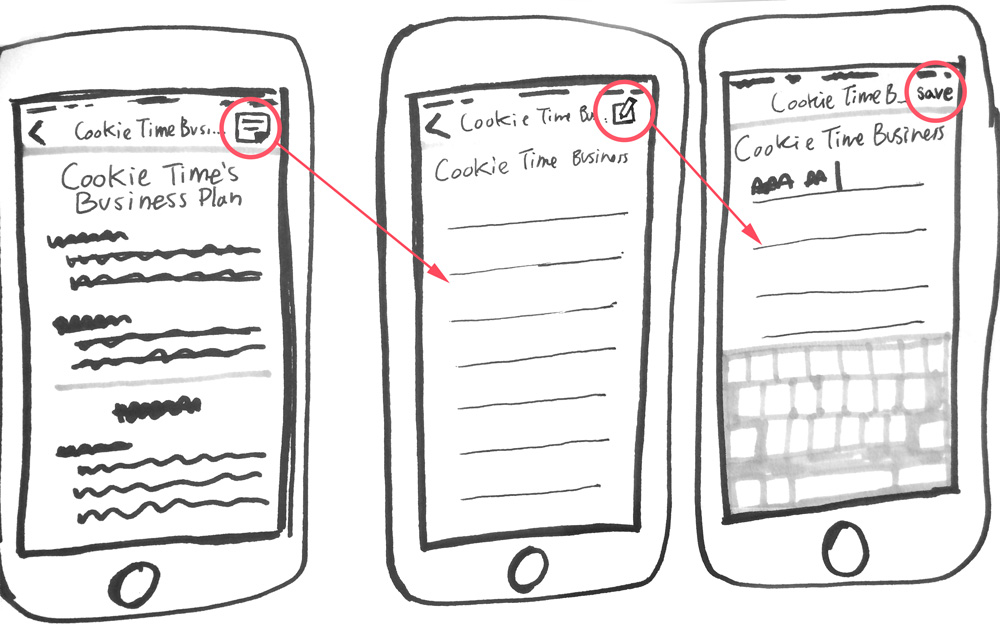 Cookie Time Busi...
Cookie Time's
Business Plan
Cookie Time Bu..
Cookie Time Business
Cookie Time B_
save
Cookie Time Business